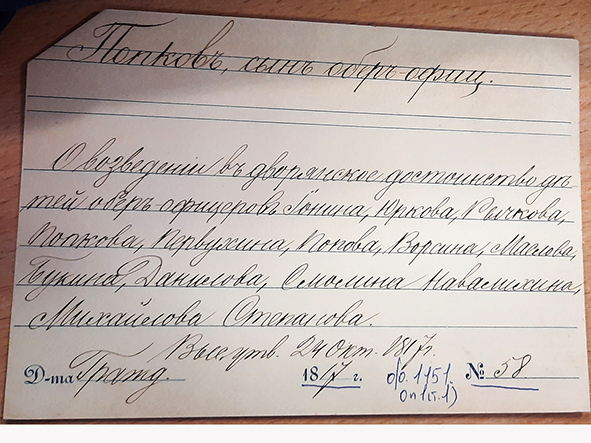 Попковъ, сынъ оберъ-офиц.
О возведеніи въ дворянское достоинство дѣ
тей оберъ офицеровъ Іонина, Юркова, Рычкова,
Попкова, Первухина, Попова, Ворсина, Маслова,
Букина, Данилова, Смолина Навалихина,
Михайлова Степанова.
Высе утв. 24 Окт. 1817г.
Д-та Гражд. 18 17 г. № 58
ф. 1151.
оп 1(т.1)